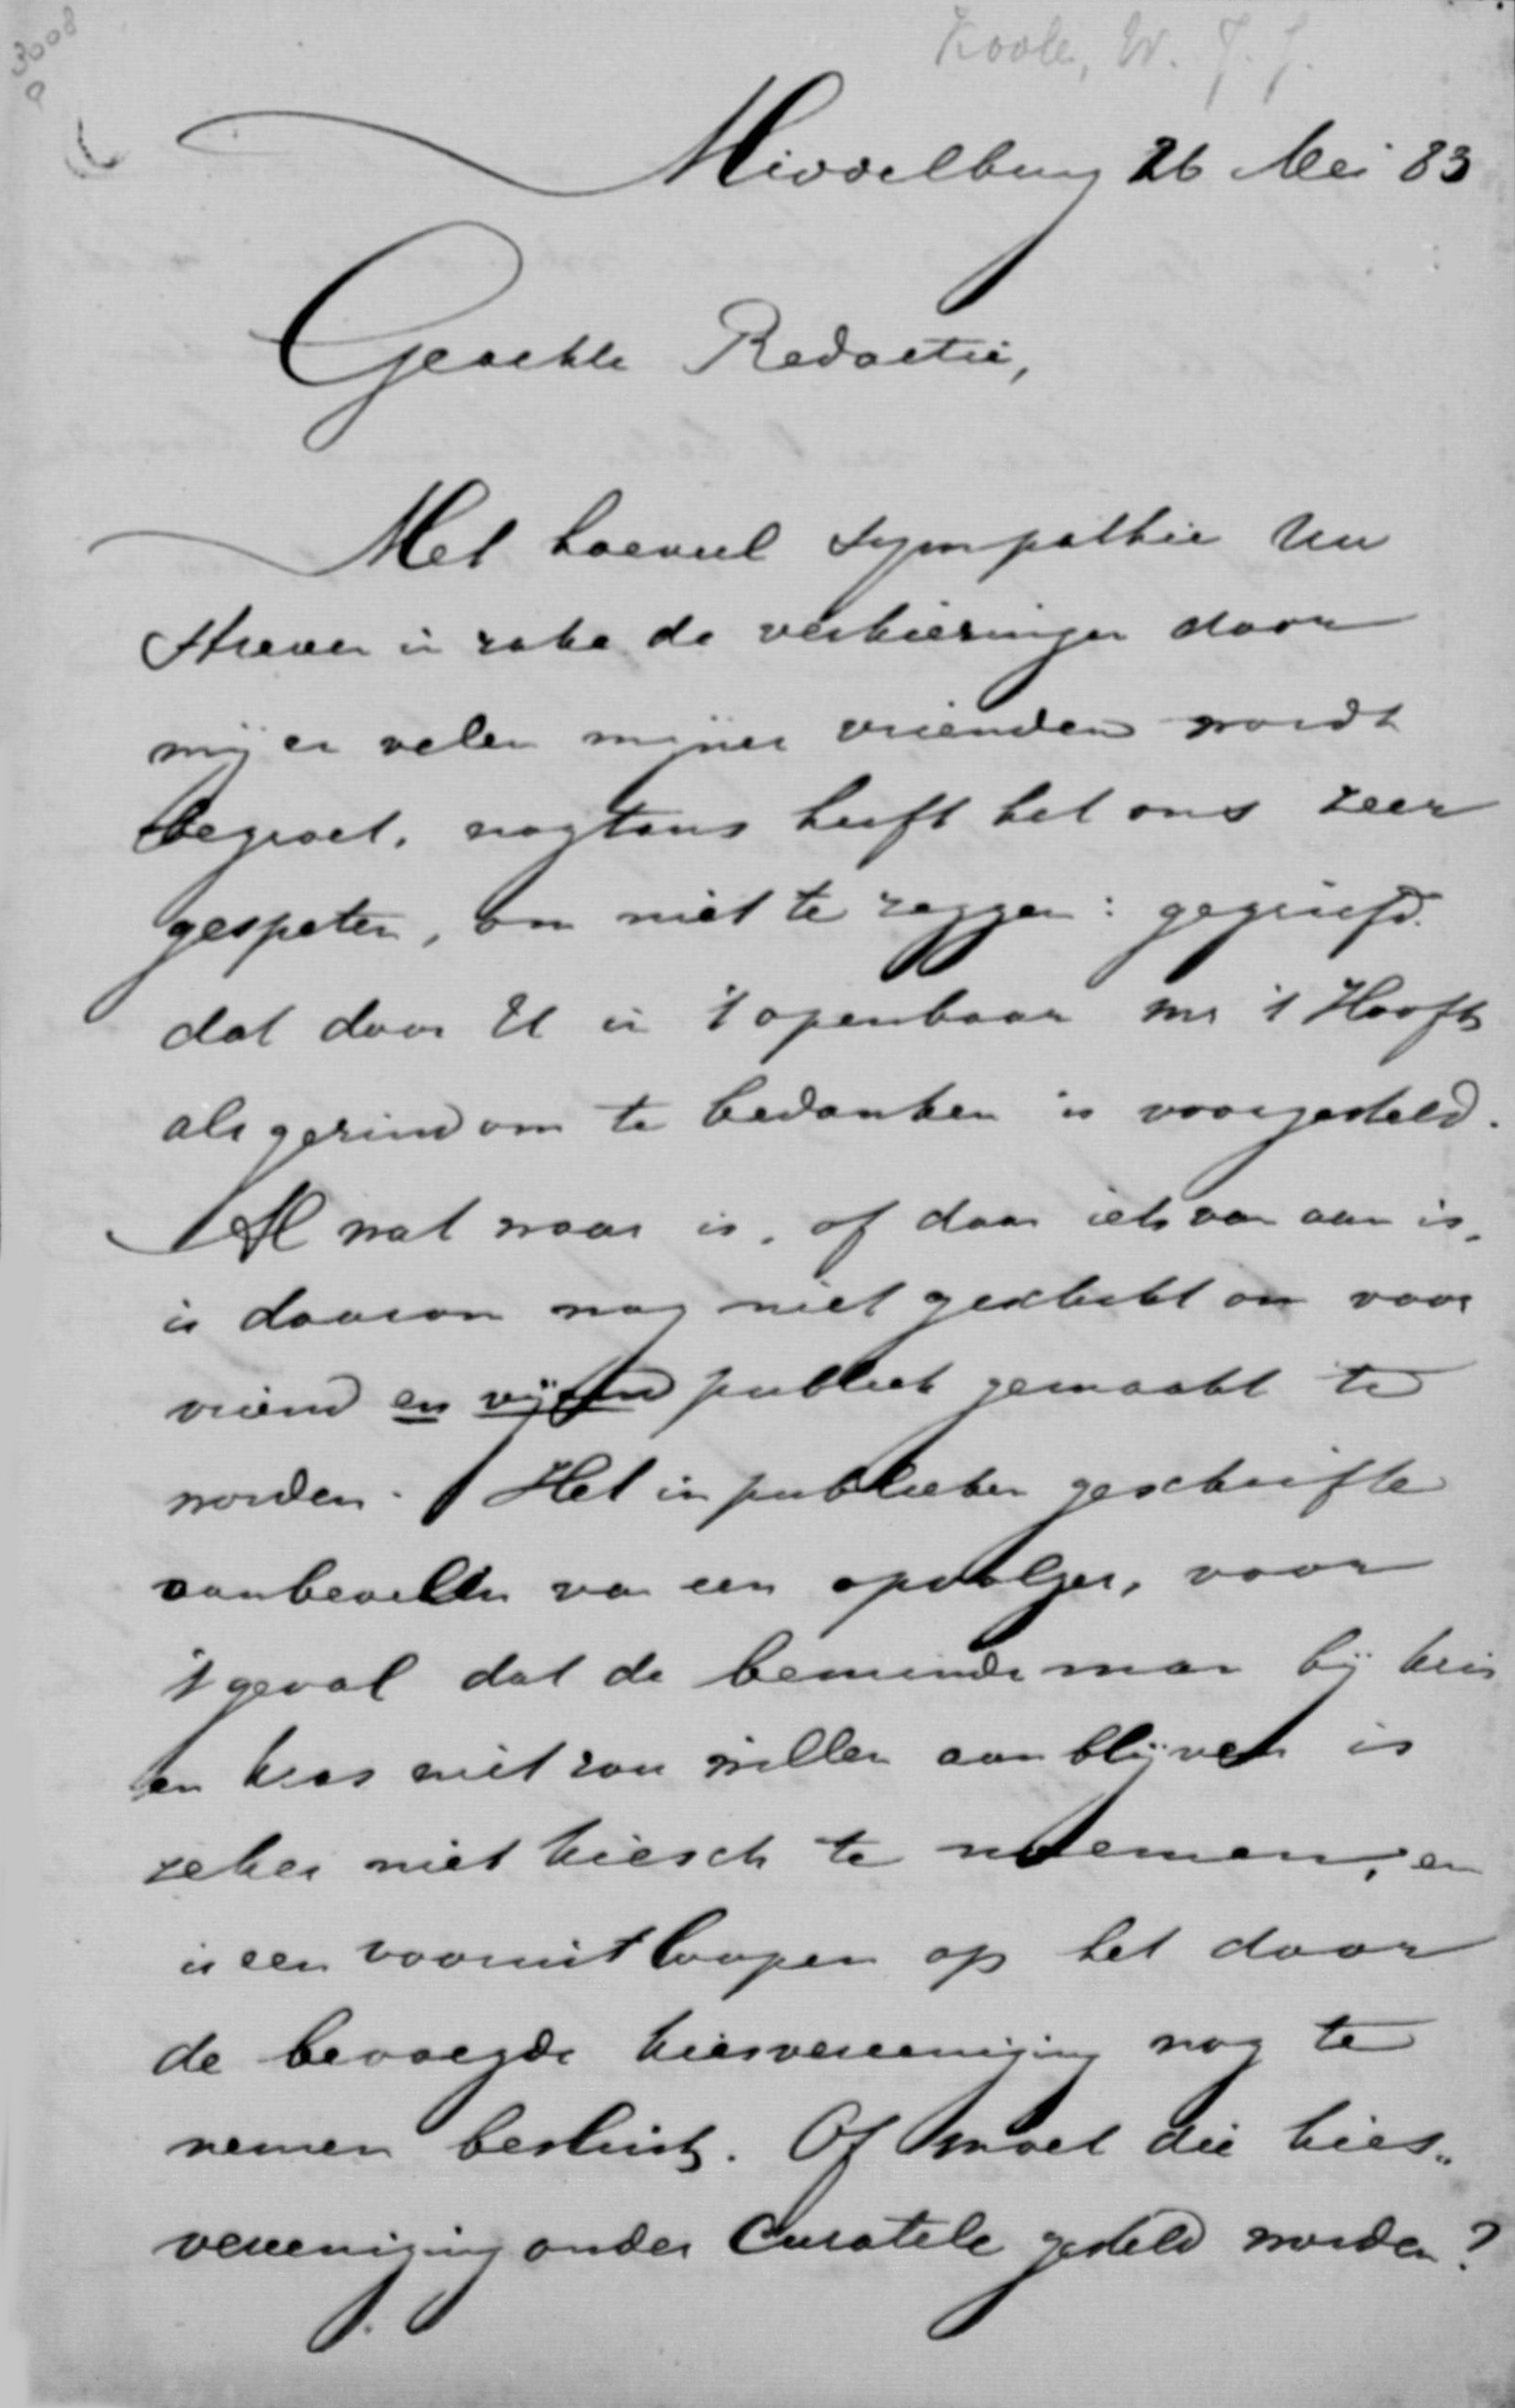 3008
Koole, W. J. J.
Middelburg 26 Mei 83
Geachte Redactie,
Met hoeveel sympathie Uw
streven in zake de verkiezingen door
mij en velen mijner vrienden wordt
begroet, nogtans heeft het ons zeer
gespeten, om niet te zeggen: gegriefd
dat door U in 't openbaar mr 't Hooft
als gezind om te bedanken is voorgesteld.
Al wat waar is, of daar iets van aan is,
is daarom nog niet geschikt om voor
vriend en vijand publiek gemaakt te
worden. Het in publieken geschrifte
aanbevelen van een opvolger, voor
't geval dat de beminde man bij kris
en kras niet zou willen aanblijven is
zeker niet kiesch te noemen, en
is een vooruitloopen op het door
de bevoegde kiesvereeniging nog te
nemen besluit. Of moet die kies„
vereeniging onder Curatele gesteld worden?